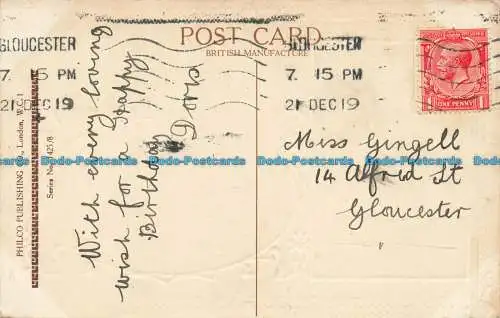 POST CARD
BRITISH MANUFACTURE
GLOUCESTER
7. 15 PM
21 DEC 19
GLOUCESTER
7. 15 PM
21 DEC 19
ONE PENNY
With every loving
wish for a Happy
Birthday
Doris
Miss Gingell
14 Alfred St
Gloucester
PHILCO PUBLISHING Co., London, W.C.1
Series No.
Dodo-Postcards Dodo-Postcards Dodo-Postcards Dodo-Postcards Dodo-Postcards